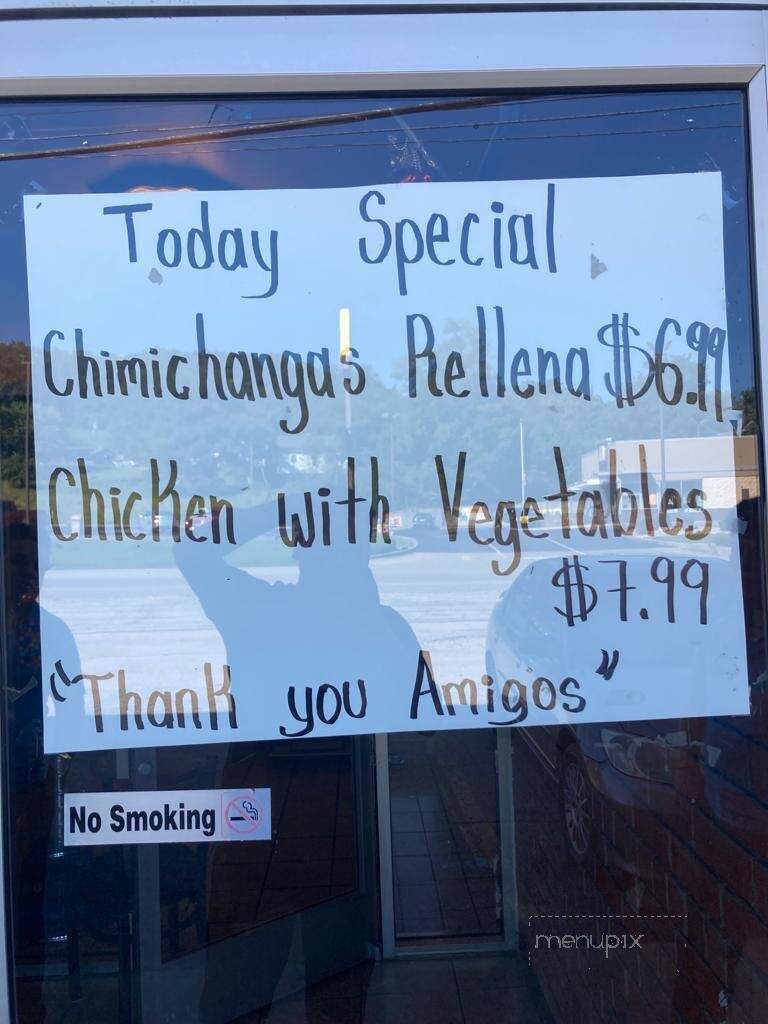 Today Special
Chimichangas Rellena $6.99
Chicken with Vegetables
$7.99
"Thank you Amigos"
No Smoking
menupix